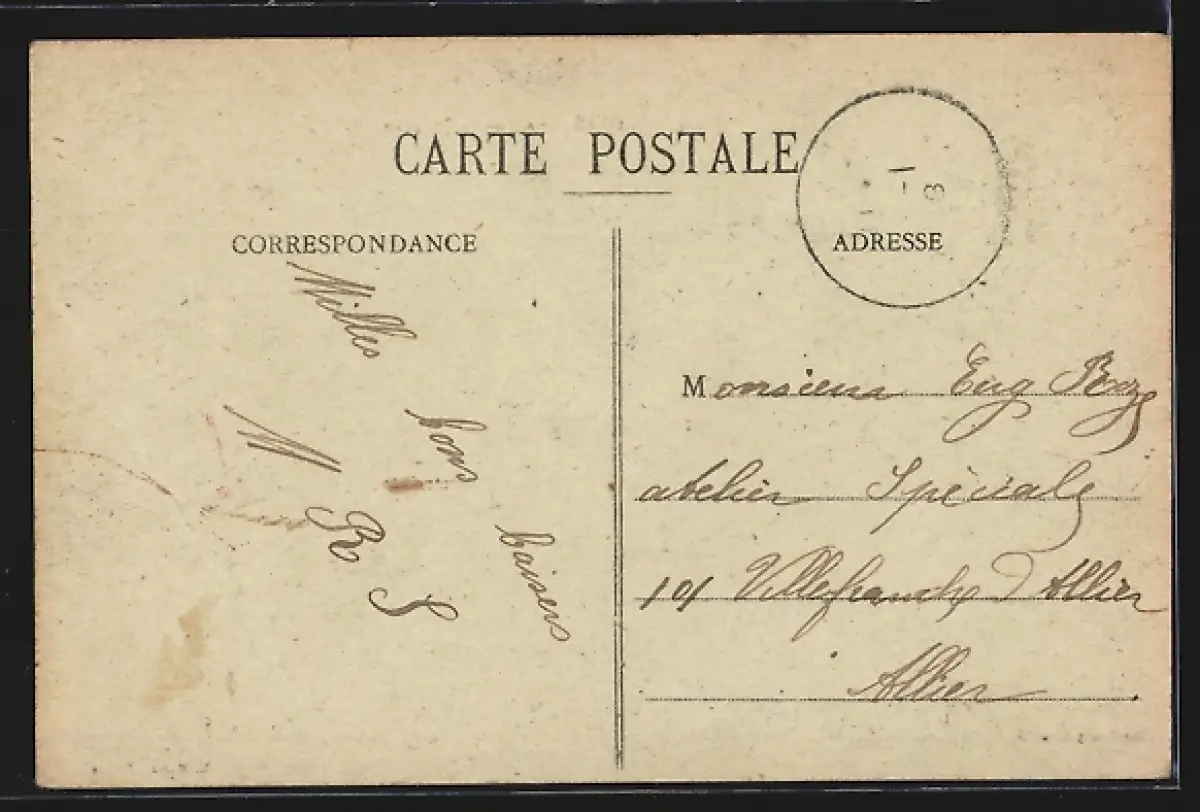 CARTE POSTALE
CORRESPONDANCE
ADRESSE
Milles
bons
baisers
M R S
Monsieur Eug
atelier Spéciale
101 Villefranche d'Allier
Allier